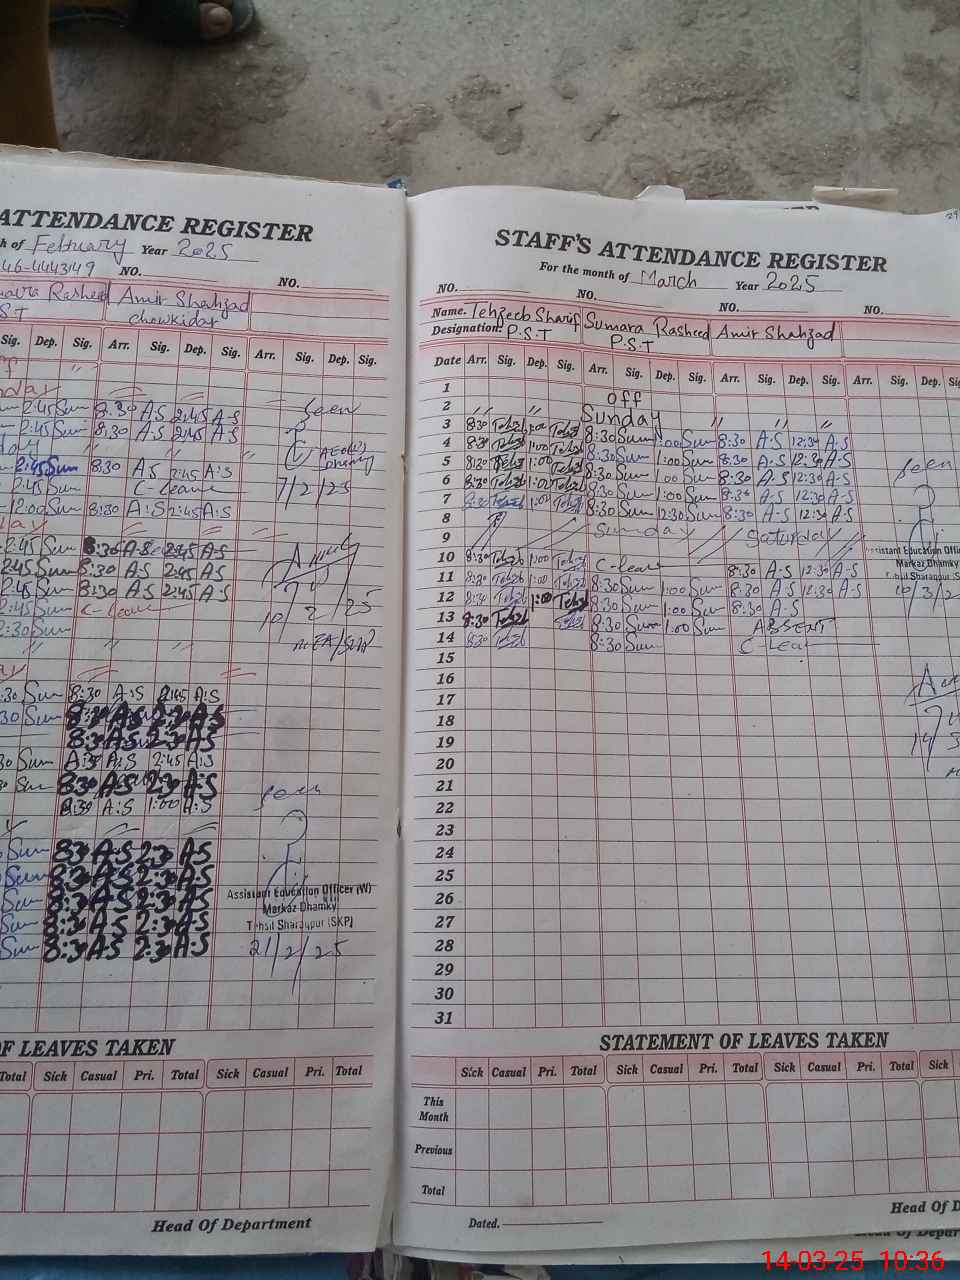 ATTENDANCE REGISTER
h of February Year 2025
46-4443149 NO. NO.
Rasheed Amir Shahzad
S.T Chowkidar
Sig. Dep. Sig. Arr. Sig. Dep. Sig. Arr. Sig. Dep. Sig.
2:45 Sum 8:30 A-S 2:45 A-S Seen
2:45 Sum 8:30 A-S 2:45 A-S
2:45 Sum 8:30 A-S 2:45 A-S
2:45 Sum C-Leave 7/2/25
12:00 Sum 8:30 A-S 2:45 A-S
2:45 Sum 8:30 A-S 2:45 A-S
2:45 Sum 8:30 A-S 2:45 A-S
2:45 Sum 8:30 A-S 2:45 A-S
2:45 Sum C-leave 10/2/25
2:30 Sum
:30 Sum 8:30 A:S 2:45 A:S
30 Sum 8:30 A-S 2:30 A-S
8:30 A-S 2:30 A-S
30 Sum A:S 2:45 A:S
Sum 8:30 A-S 2:30 A:S
8:30 A:S 1:00 A:S
Seen
Sum 8:30 A-S 2:30 A-S
Sum 8:30 A-S 2:30 A-S
Sum 8:30 A-S 2:30 A-S
Sum 8:30 A-S 2:30 A-S
Sum 8:30 A-S 2:30 A-S
Assistant Education Officer (W)
Markaz Dhamky
Tehsil Sharaqpur (SKP)
21/2/25
OF LEAVES TAKEN
Total Sick Casual Pri. Total Sick Casual Pri. Total
Head Of Department
STAFF'S ATTENDANCE REGISTER
For the month of March Year 2025
NO. NO. NO. NO.
Name. Tehzeeb Sharif Sumara Rasheed Amir Shahzad
Designation: P.S.T P.S.T
Date Arr. Sig. Dep. Sig. Arr. Sig. Dep. Sig. Arr. Sig. Dep. Sig. Arr. Sig. Dep. Sig
1 off
2 " " Sunday " " "
3 8:30 Tehzb 1:00 Tehzb 8:30 Sum 1:00 Sum 8:30 A-S 12:30 A-S
4 8:30 Tehzb 1:00 Tehzb 8:30 Sum 1:00 Sum 8:30 A-S 12:30 A-S
5 8:30 Tehzb 1:00 Tehzb 8:30 Sum 1:00 Sum 8:30 A-S 12:30 A-S Seen
6 8:30 Tehzb 1:00 Tehzb 8:30 Sum 1:00 Sum 8:30 A-S 12:30 A-S
7 8:30 Tehzb 1:00 Tehzb 8:30 Sum 12:30 Sum 8:30 A-S 12:30 A-S
8 Saturday
9 Sunday
10 8:30 Tehzb 1:00 Tehzb C-leave 8:30 A-S 12:30 A-S
11 8:30 Tehzb 1:00 Tehzb 8:30 Sum 1:00 Sum 8:30 A-S 12:30 A-S
12 8:30 Tehzb 1:00 Tehzb 8:30 Sum 1:00 Sum 8:30 A-S
13 8:30 Tehzb Tehzb 8:30 Sum 1:00 Sum ABSENT
14 8:30 Tehzb 8:30 Sum C-Leave
sistant Education Off
Markaz Dhamky
Tehsil Sharaqpur (S
10/3/2
15
16
17
18
19
20
21
22
23
24
25
26
27
28
29
30
31
STATEMENT OF LEAVES TAKEN
Sick Casual Pri. Total Sick Casual Pri. Total Sick Casual Pri. Total Sick
This Month
Previous
Total
Head Of D
Dated.
14-03-25 10:36